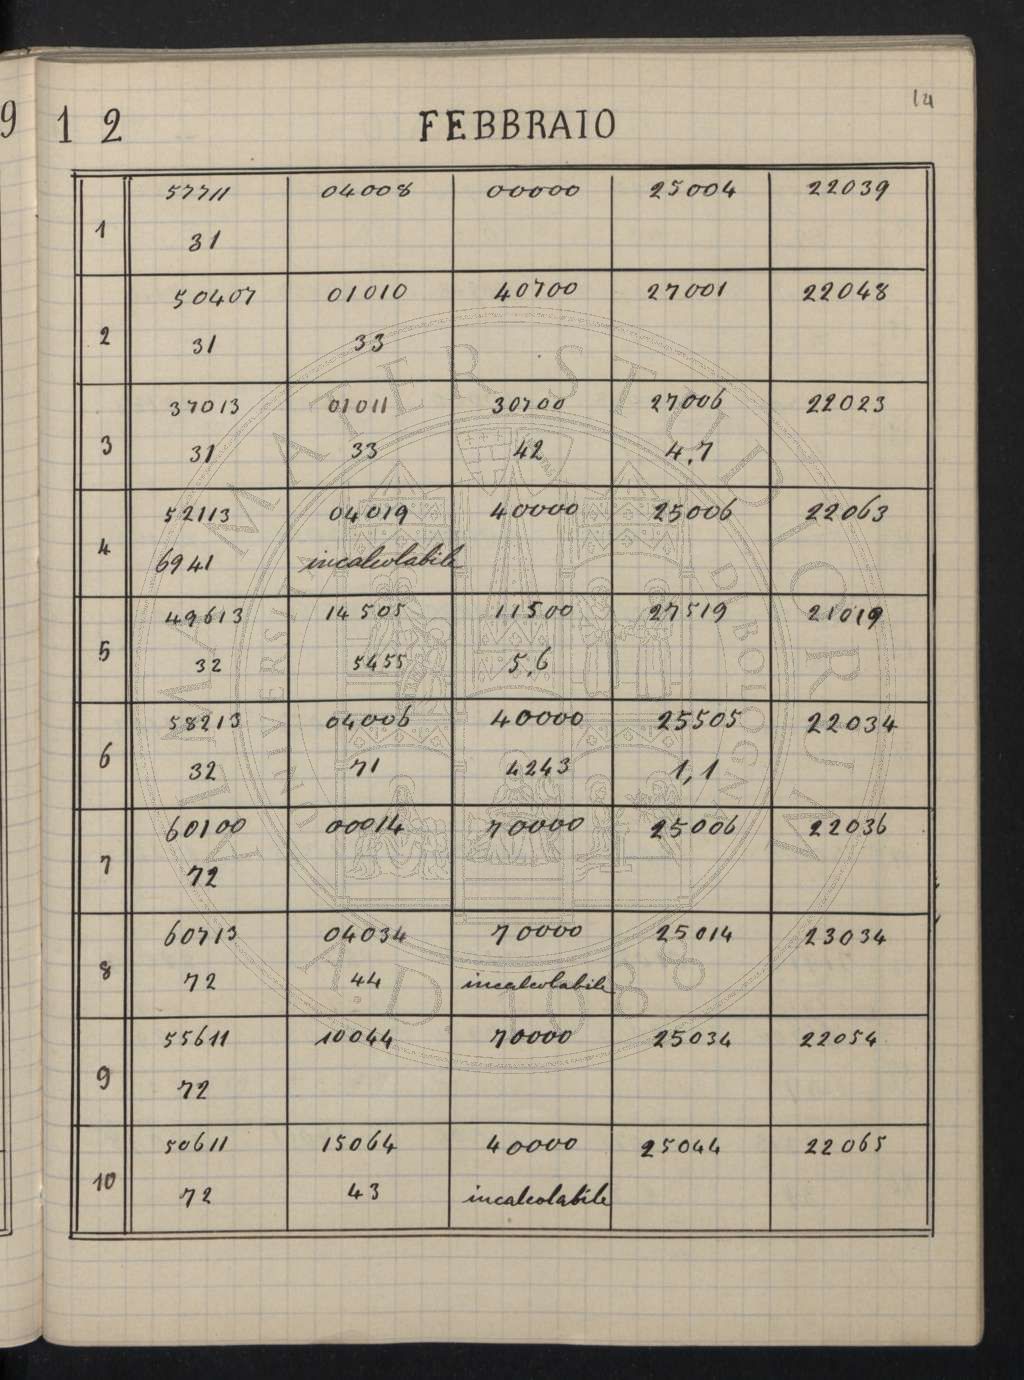 9 1 2 FEBBRAIO 14
57711 04008 00000 25004 22039
1
31
50407 01010 40700 27001 22048
2
31 33
37013 01011 30700 27006 22023
3
31 33 42 4,7
52113 04019 40000 25006 22063
4
6941 incalcolabile
49613 14505 11500 27519 21019
5
32 5455 5,6
58213 04006 40000 25505 22034
6
32 71 4243 1,1
60100 00014 70000 25006 22036
7
72
60713 04034 70000 25014 23034
8
72 44 incalcolabile
55611 10044 70000 25034 22054
9
72
50611 15064 40000 25044 22065
10
72 43 incalcolabile
ALMA MATER STUDIORUM
UNIVERSITÀ DI BOLOGNA
A.D. 1088